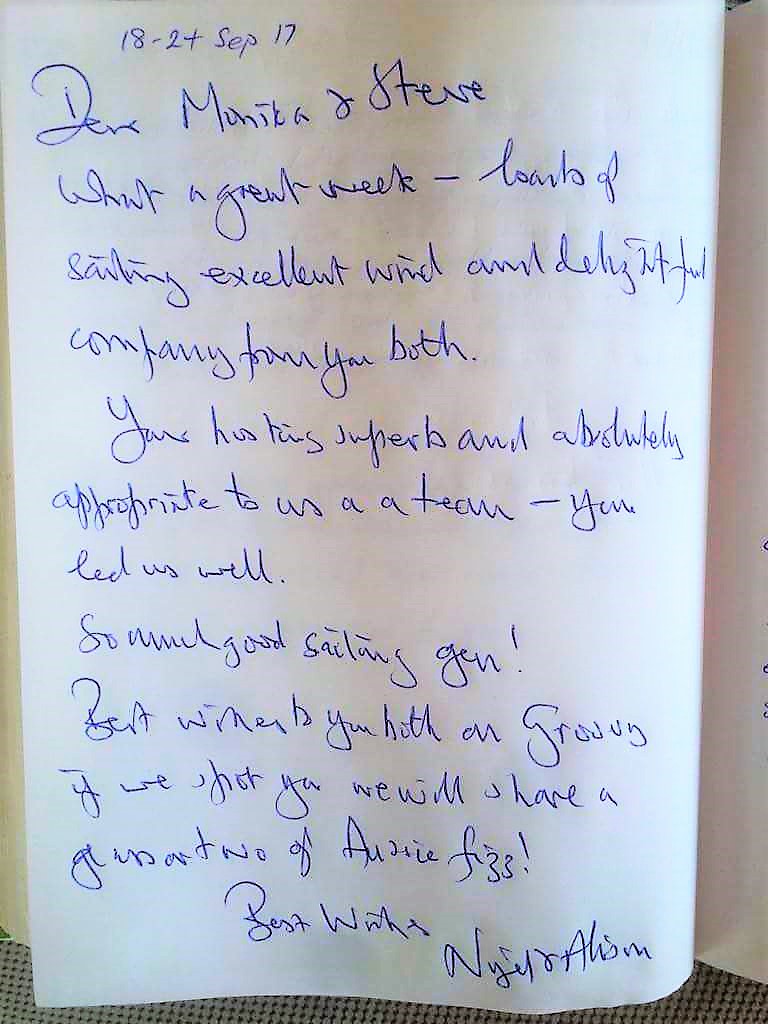 18-24 Sep 17
Dear Monika & Steve
What a great week – loads of
sailing excellent wind and delightful
company from you both.
Your hosting superb and absolutely
appropriate to us a a team – you
led us well.
So much good sailing gen!
Best wishes to you both on Groovy
if we spot you we will share a
glass or two of Aussie fizz!
Best Wishes
Nigel & Alison